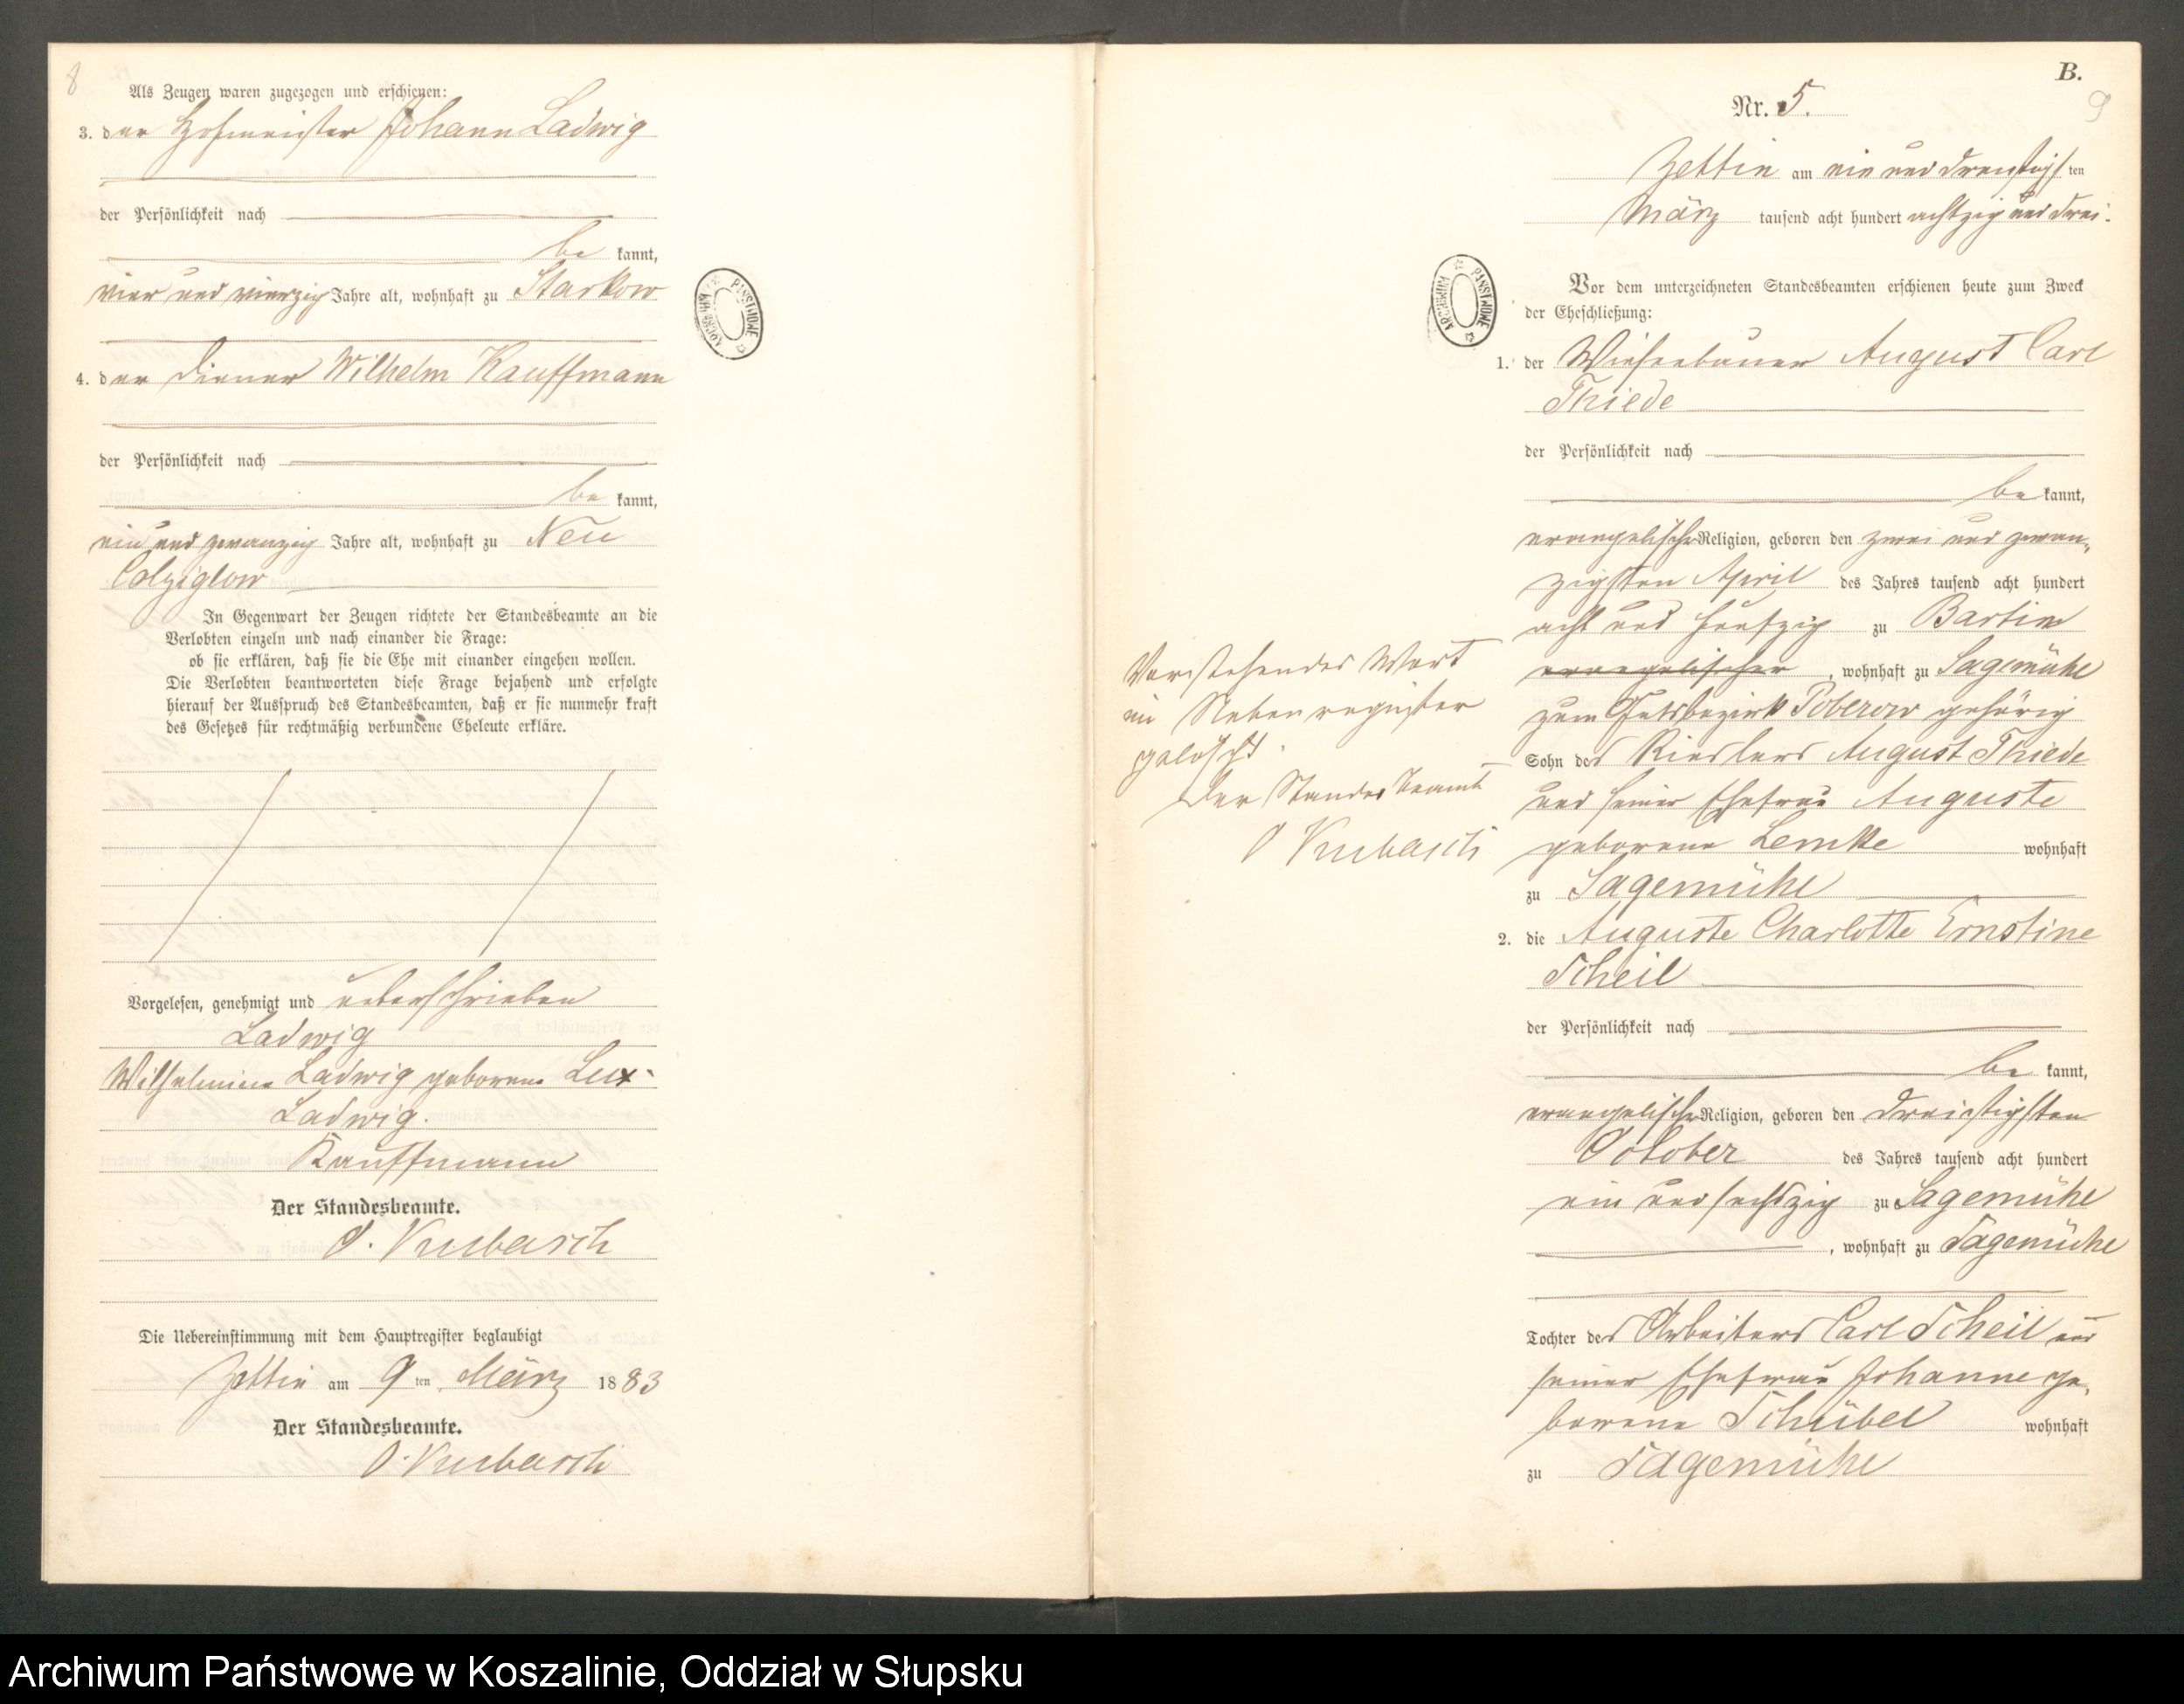 8
Als Zeugen waren zugezogen und erschienen:
3. der Hofmeister Johann Ladwig
der Persönlichkeit nach
be kannt,
vier und vierzig Jahre alt, wohnhaft zu Starkow
4. der Diener Wilhelm Kauffmann
der Persönlichkeit nach
be kannt,
ein und zwanzig Jahre alt, wohnhaft zu Neu
Colziglow
In Gegenwart der Zeugen richtete der Standesbeamte an die
Verlobten einzeln und nach einander die Frage:
ob sie erklären, daß sie die Ehe mit einander eingehen wollen.
Die Verlobten beantworteten diese Frage bejahend und erfolgte
hierauf der Ausspruch des Standesbeamten, daß er sie nunmehr kraft
des Gesetzes für rechtmäßig verbundene Eheleute erkläre.
Vorgelesen, genehmigt und unterschrieben
Ladwig
Wilhelmine Ladwig geborene Lux
Ladwig.
Kauffmann
Der Standesbeamte.
O. Kubasch
Die Uebereinstimmung mit dem Hauptregister beglaubigt
Zettin am 9 ten März 1883
Der Standesbeamte.
O. Kubasch
ARCHIWUM PAŃSTWOWE
B.
9
Nr. 5.
Zettin am ein und dreißigsten
März tausend acht hundert achtzig und drei.
ARCHIWUM PAŃSTWOWE
Vor dem unterzeichneten Standesbeamten erschienen heute zum Zweck
der Eheschließung:
1. der Wiesenbauer August Carl
Thiede
der Persönlichkeit nach
be kannt,
evangelischer Religion, geboren den zwei und zwan-
zigsten April des Jahres tausend acht hundert
acht und fünfzig zu Bartin
evangelischer, wohnhaft zu Sagemühle
zum Gutsbezirk Poberow gehörig
Sohn des August Thiede
und seiner Ehefrau Auguste
geborene Lemke wohnhaft
zu Sagemühle
Vorstehendes Wort
im Nebenregister
gelöscht.
Der Standesbeamte
O Kubasch
2. die Auguste Charlotte Ernstine
Scheil
der Persönlichkeit nach
be kannt,
evangelischer Religion, geboren den dreißigsten
October des Jahres tausend acht hundert
ein und sechszig zu Sagemühle
, wohnhaft zu Sagemühle
Tochter des Arbeiters Carl Scheil und
seiner Ehefrau Johanne ge-
borene Schübel wohnhaft
zu Sagemühle
Archiwum Państwowe w Koszalinie, Oddział w Słupsku